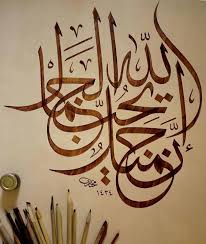 إن الله جميل يحب الجمال
١٤٣٤